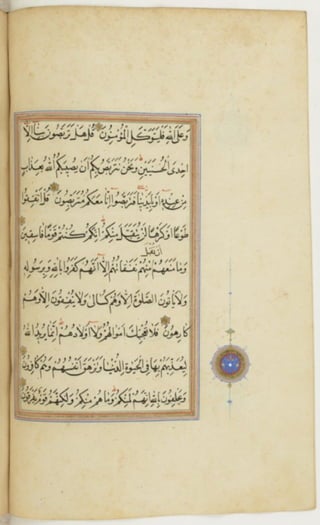 وَعَلَى اللهِ فَلْيَتَوَكَّلِ الْمُؤْمِنُونَ قُلْ هَلْ تَرَبَّصُونَ بِنَا إِلَّا
اِحْدَى الْحُسْنَيَيْنِ وَنَحْنُ نَتَرَبَّصُ بِكُمْ اَنْ يُصِيبَكُمُ اللهُ بِعَذَابٍ
مِنْ عِنْدِهِ اَوْ بِاَيْدِينَا فَتَرَبَّصُوا اِنَّا مَعَكُمْ مُتَرَبِّصُونَ قُلْ اَنْفِقُوا
طَوْعًا اَوْ كَرْهًا لَنْ يُتَقَبَّلَ مِنْكُمْ اِنَّكُمْ كُنْتُمْ قَوْمًا فَاسِقِينَ
وَمَا مَنَعَهُمْ اَنْ تُقْبَلَ مِنْهُمْ نَفَقَاتُهُمْ اِلَّا اَنَّهُمْ كَفَرُوا بِاللهِ وَبِرَسُولِهِ
وَلَا يَأْتُونَ الصَّلٰوةَ اِلَّا وَهُمْ كُسَالَى وَلَا يُنْفِقُونَ اِلَّا وَهُمْ
كَارِهُونَ فَلَا تُعْجِبْكَ اَمْوَالُهُمْ وَلَا اَوْلَادُهُمْ اِنَّمَا يُرِيدُ اللهُ
لِيُعَذِّبَهُمْ بِهَا فِي الْحَيٰوةِ الدُّنْيَا وَتَزْهَقَ اَنْفُسُهُمْ وَهُمْ كَافِرُونَ
وَيَحْلِفُونَ بِاللهِ اِنَّهُمْ لَمِنْكُمْ وَمَا هُمْ مِنْكُمْ وَلٰكِنَّهُمْ قَوْمٌ يَفْرَقُونَ